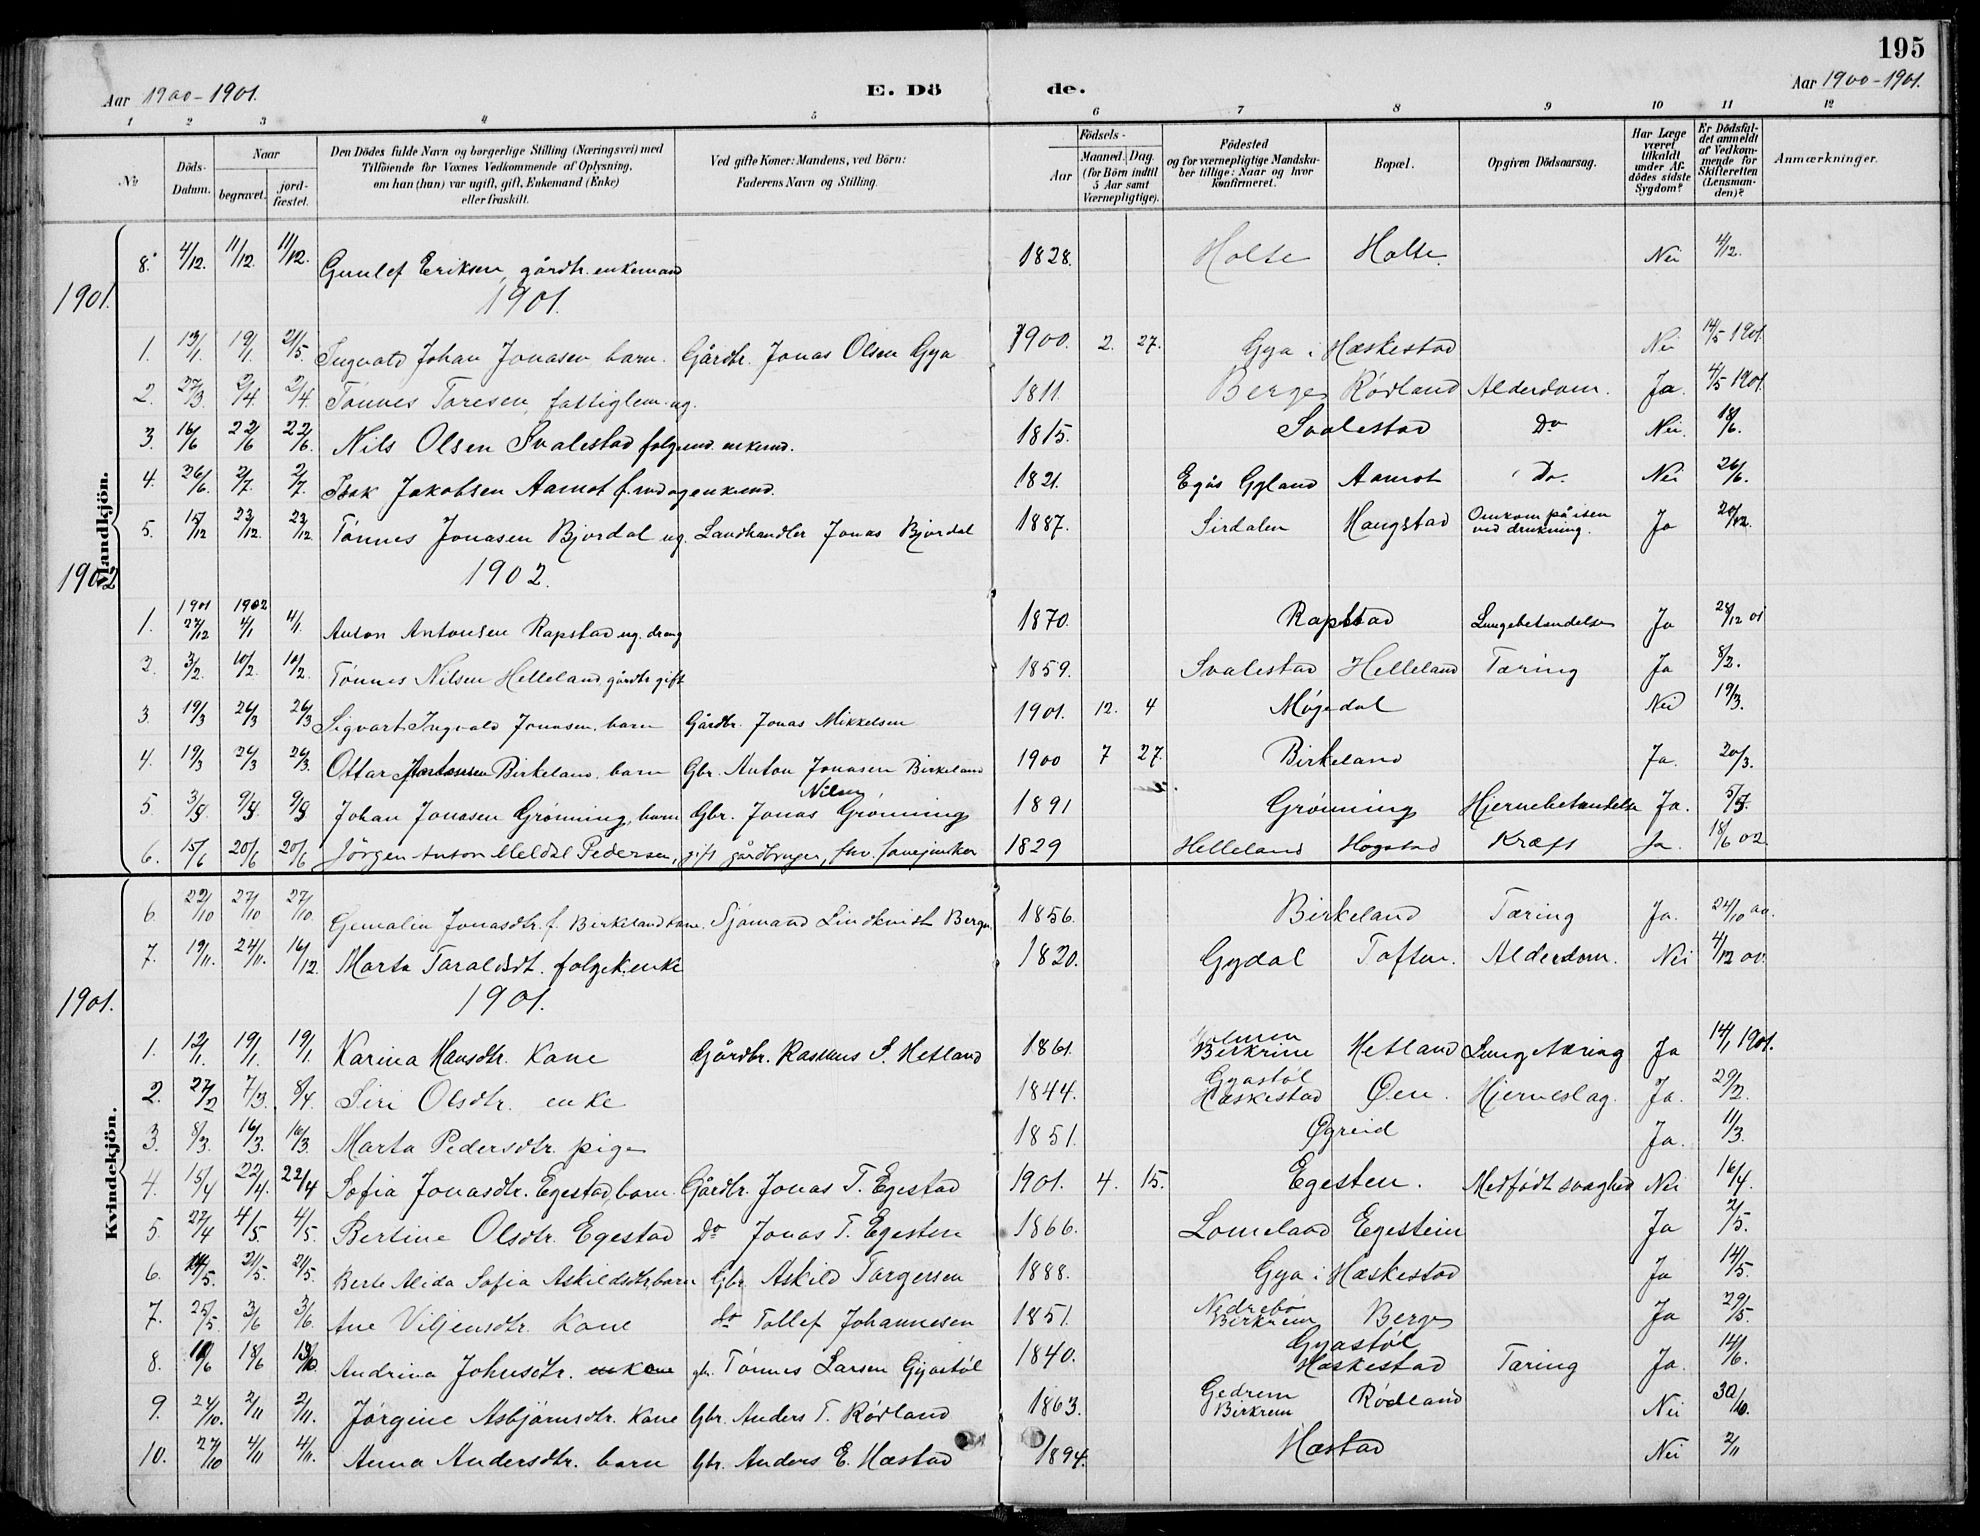 195
Aar 1900-1901. E. Dö de. Aar 1900-1901.
1 2 3 4 5 6 7 8 9 10 11 12
No
Döds-Datum.
Naar
begravet.
jord-fæstet.
Den Dödes fulde Navn og borgerlige Stilling (Næringsvei) med
Tilföiende for Voxnes Vedkommende af Oplysning,
om han (hun) var ugift, gift, Enkemand (Enke)
eller fraskilt.
Ved gifte Koner: Mandens, ved Börn:
Faderens Navn og Stilling.
Födsels-
Aar
Maaned. Dag.
(for Börn indtil
5 Aar samt
Værnepligtige).
Födested
og for værnepligtige Mandska-
ber tillige: Naar og hvor
konfirmeret.
Bopæl.
Opgiven Dödsaarsag.
Har Læge
været
tilkaldt
under Af-
dödes sidste
Sygdom?
Er Dödsfal-
det anmeldt
af Vedkom-
mende for
Skifteretten
(Lensman-
den)?
Anmærkninger.
Mandkjön.
8. 4/12. 11/12. 11/12. Gunlef Eriksen, gårdbr. enkemand 1828. Holte Holte Nei 4/12.
1901. 1901.
1. 13/1. 19/1. 21/5. Ingvald Johan Jonasen, barn. Gårdbr. Jonas Olsen Gya 1900. 2. 27. Gya i Hæskestad Nei 14/5 1901.
2. 27/3. 2/4 2/4. Tönnes Toresen, fattiglem. ug. 1811. Berge Rödland Alderdom. Ja. 4/5 1901.
3. 16/6 22/6 22/6. Nils Olsen Svalestad folgemd. enkemd. 1815. Svalestad Do Nei. 18/6.
4. 26/6. 2/7. 2/7. Isak Jakobsen Aamot f. md og enkemd. 1821. Egås Gyland Aamot Do. Nei 26/6.
5. 15/12 23/12. 23/12. Tönnes Jonasen Bjordal ug. Landhandler Jonas Bjordal 1887. Sirdalen Haugstad Omkom på isen ved drukning. Ja 20/12.
1902 1902.
1. 1901 27/12 1902 4/1 4/1. Anton Antonsen Rapstad ug. dreng 1870. Rapstad Lungebetændelse Ja 28/12 01
2. 3/2. 10/2. 10/2. Tönnes Nilsen Helleland gårdbr gift 1859. Svalestad Helleland Tæring Ja 8/2.
3. 19/3 26/3 26/3 Sigvart Ingvald Jonasen. barn Gårdbr. Jonas Mikkelsen 1901. 12. 4 Møgedal Nei 19/3.
4. 19/3 26/3 26/3. Ottar Antonsen Birkeland. barn Gbr. Anton Jonasen Birkeland 1900 7 27. Birkeland Ja. 20/3.
5. Johan Jonasen Grönning, barn Gbr. Jonas Nilsen Grönning 1891 Grönning Hjernebetændelse Ja.
6. 15/6 20/6 20/6 Jörgen Anton Meldal Pedersen, gift gårdbruger, fhv. fanejunker 1829 Helleland Hogstad Kræft Ja. 18/6 02.
Kvindekjön.
6. 22/10 27/10 27/10. Gemalie Jonasdtr. f. Birkeland kone. Sjömand Lindkvist Bergen 1856. Birkeland Tæring Ja. 24/10 00.
7. 19/11. 24/11. 16/12. Marta Taraldsdt. folgek. enke 1820. Gydal Toften. Alderdom. Nei 4/12 00.
1901. 1901.
1. 12/1. 19/1. 19/1 Karina Hansdtr. Kone Gårdbr. Rasmus S. Hetland 1861. Birkrem Hetland Lungetæring Ja 14/1 1901.
2. 27/2 7/3. 8/4. Siri Olsdtr. enke 1844. Gyastøl Hæskestad Øen. Hjerneslag. Ja. 29/2.
3. 8/3. 16/3. 16/3 Marta Pedersdtr. pige 1851. Øgreid Ja. 11/3.
4. 15/4 22/4. 22/4 Sofia Jonasdtr. Egestad barn. Gårdbr. Jonas T. Egestad 1901. 4. 15. Egesten. Medfödt svaghed Nei 16/4.
5. 27/4 4/5 4/5. Bertine Olsdtr. Egestad Do Jonas T. Egesten 1866. Lomeland Egestein Ja 2/5.
6. 14/5. 21/5. 21/5. Berte Alida Sofia Askildsdtr. barn Gbr. Askild Torgersen 1888. Gya i Hæskestad Ja 14/5.
7. 25/5. 3/6 3/6. Ane Viljensdtr. Kone do Tollef Johannesen 1851. Nedrebø Birkrem Berge Ja 29/5.
8. 11/6 18/6 Andrina Johnsdtr. kone gbr. Tönnes Larsen Gyastöl 1840. Gyastöl Hæskestad Tæring Ja. 14/6.
9. 24/10. 2/11 2/11. Jörgine Asbjörnsdtr. kone Gbr. Anders T. Rödland 1863. Gedrem Birkrem Rödland Nei 30/10.
10. 27/10 4/11 4/11. Anna Andersdtr. barn Gbr. Anders E. Hæstad 1894. Hæstad Nei 2/11